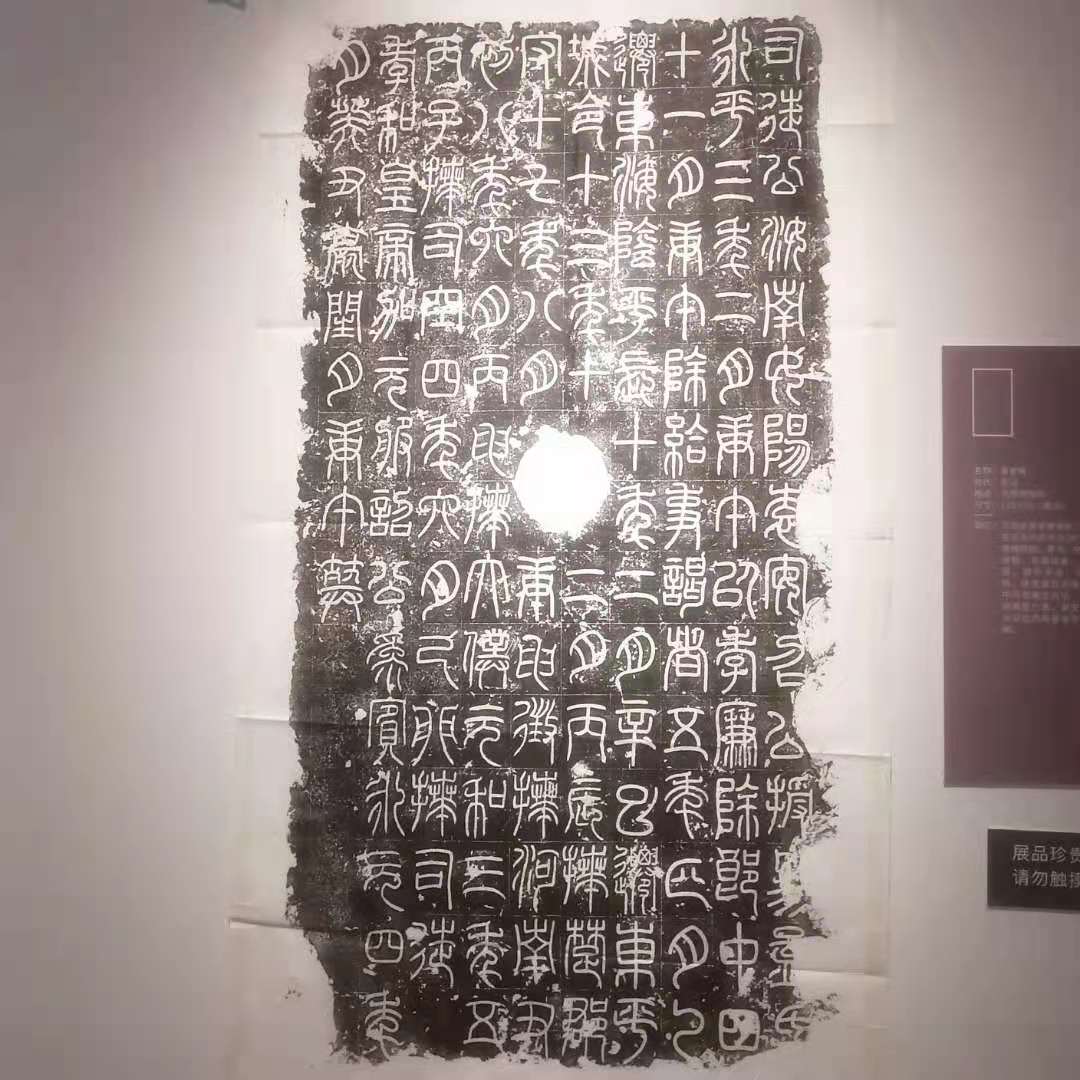 司徒公汝南女陽袁安召公授易孟氏
永平三年二月庚午以孝廉除郎中四
十一月庚午除給事謁者五年正月乙
遷東海陰平長十年二月辛巳遷東平
城令十三年十二月丙辰拜楚郡
守十七年八月庚申徵拜河南尹
初八年六月丙申拜太僕元和三年五
丙子拜司空四年六月己卯拜司徒
孝和皇帝加元服詔公為賓永元四年
月癸丑薨閏月庚午葬
展品珍貴
请勿触摸